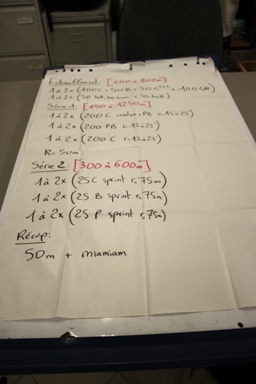 Echauffement: [400 à 800m]
1 à 2x (100C + 50B + 50 + 100 )
1 à 2x (50 + 50 )
Série 1 [650 à 1250m]
1 à 2x (200 C + PB r.15à25)
1 à 2x (200 PB r.15à25)
1 à 2x (200 C r.15à25)
R = 50m
Série 2 [300 à 600m]
1 à 2x (25 C sprint r.75m)
1 à 2x (25 B sprint r.75m)
1 à 2x (25 P sprint r.75m)
Récup:
50m + miamiam